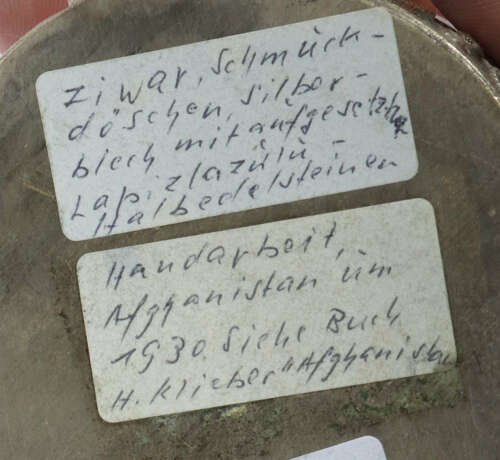 Ziwar, Schmück-
döschen, Silber-
blech mit aufgesetzten
Lapizlazülü-
Halbedelsteinen
Handarbeit,
Afghanistan üm
1930. Siehe Buch
H. Klieber "Afghanistan